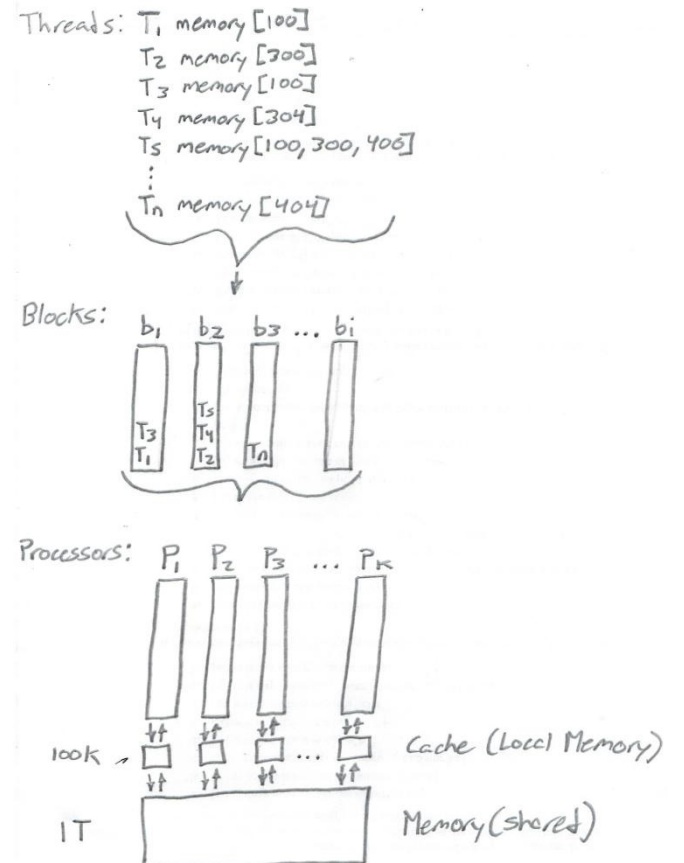 Threads: T1 memory [100]
T2 memory [300]
T3 memory [100]
T4 memory [304]
T5 memory [100, 300, 406]
⋮
Tn memory [404]
Blocks:
b1 b2 b3 ... bi
T5
T3 T4
T1 T2 Tn
Processors: P1 P2 P3 ... PK
100K ... Cache (Local Memory)
1T Memory (shared)